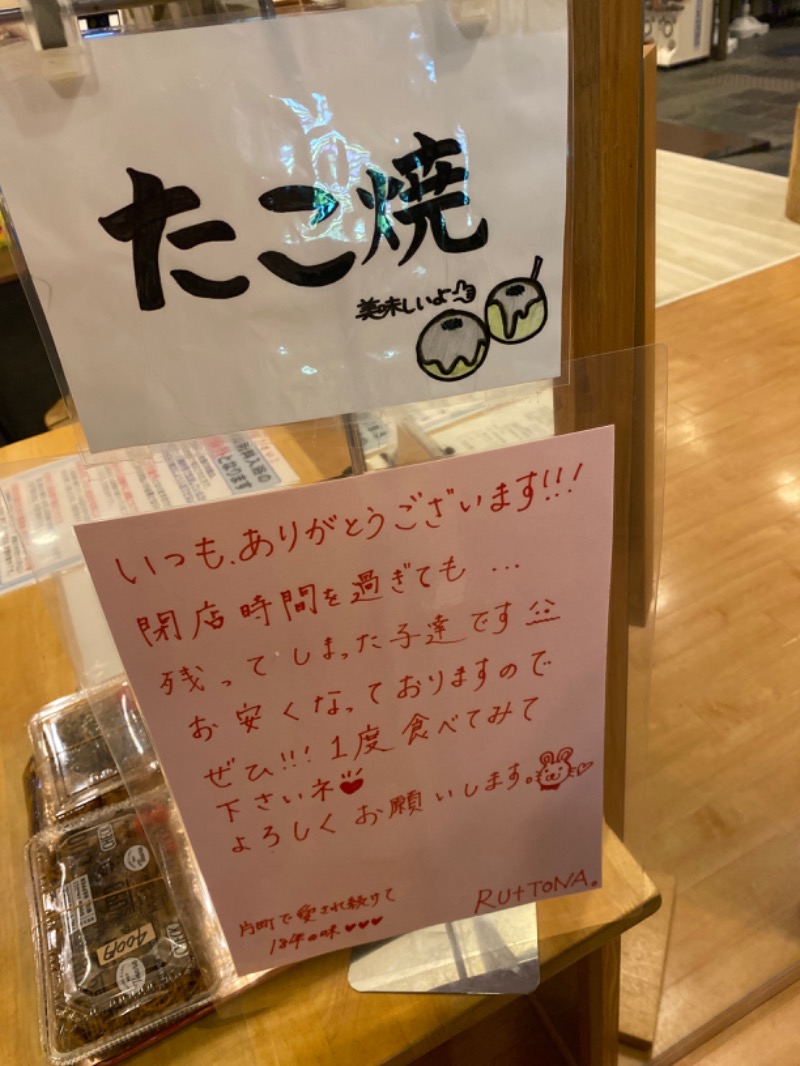 たこ焼
美味しいよ
いつも、ありがとうございます!!!
閉店時間を過ぎても…
残ってしまった子達です
お安くなっておりますので
ぜひ!!!1度食べてみて
下さいネ
よろしくお願いします。
片町で愛され続けて
18年の味
RU+TONA。
400円